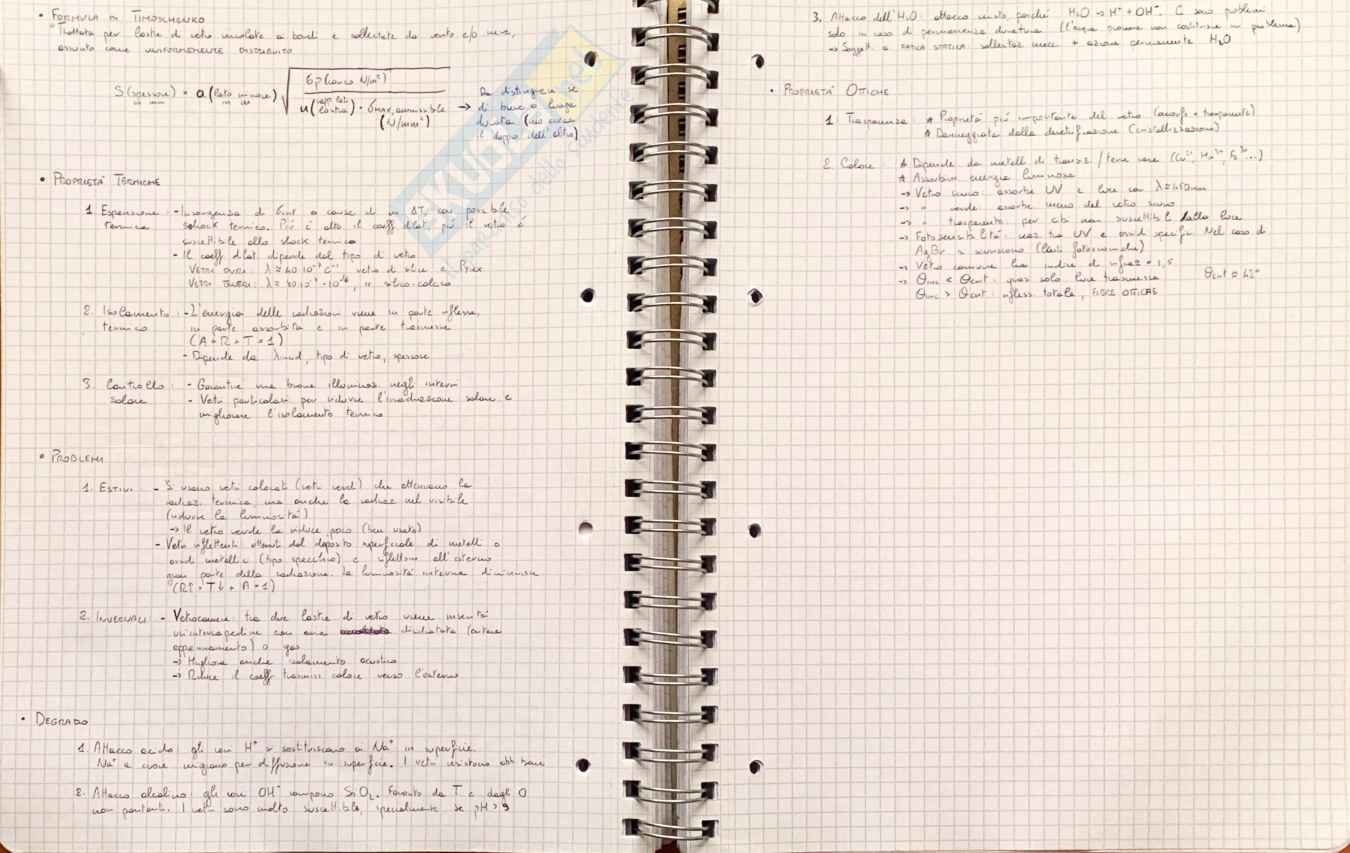 • FORMULA DI TIMOSCHENKO
"Trattata per lastre di vetro vincolate a bordi e sollecitate da vento e/o neve,
assunto come UNIFORMEMENTE DISTRIBUITO
S (spessore) = a (lato minore) √
6 p (carico N/m²)
n (lati) · σMAX, ammissibile (N/mm²)
→ Da distinguere se di breve o lunga durata (una circa il doppio dell'altra)
• PROPRIETÀ TERMICHE
1. Espansione termica : - Insorgenza di σint a causa di un ΔT, con possibile
shock termico. Più è alto il coeff dilat, più il vetro è
suscettibile allo shock termico
- Il coeff dilat dipende dal tipo di vetro
VETRI DURI: vetro di silice e Pirex
VETRI TENERI: silico-calcio
2. Isolamento termico : - L'energia delle radiazioni viene in parte riflessa,
in parte assorbita e in parte trasmessa
(A + R + T = 1)
- Dipende da λ irrad, tipo di vetro, spessore
3. Controllo solare : - Garantire una buona illuminaz negli interni
- Vetri particolari per ridurre l'irradiazione solare e
migliorare l'isolamento termico
• PROBLEMI
1. ESTIVI - Si usano vetri colorati (vetri verdi) che attenuano la
radiaz. termica, ma anche la radiaz nel visibile
(riduce la luminosità)
→ Il vetro verde la riduce poco (ben usato)
- Vetri riflettenti ottenuti dal deposito superficiale di metalli o
ossidi metallici (tipo specchio) e riflettono all'esterno
gran parte della radiazione. La luminosità interna diminuisce
(R↑ + T↓ + A = 1)
2. INVERNALI - Vetrocamera: tra due lastre di vetro viene inserita
un'intercapedine con aria disidratata (evitare
appannamento) o gas
→ Migliora anche isolamento acustico
→ Riduce il coeff trasmiss calore verso l'esterno
• DEGRADO
1. Attacco acido: gli ioni H⁺ si sostituiscono ai Na⁺ in superficie.
Na⁺ a cuore migrano per diffusione in superficie. I vetri resistono abb bene
2. Attacco alcalino: gli ioni OH⁻ rompono SiO₂. Favorito da T e dagli O
non pontanti. I vetri sono molto suscettibile, specialmente se pH > 9
3. Attacco dell'H₂O: attacco misto, perché H₂O → H⁺ + OH⁻. Ci sono problemi
solo in caso di permanenza duratura (l'acqua piovana non costituisce un problema)
→ Soggetti a FATICA STATICA: sollecitaz mecc + azione permanente H₂O
• PROPRIETÀ OTTICHE
1. Trasparenza : ★ Proprietà più importante del vetro (amorfo + trasparente)
★ Danneggiata dalla devetrificazione (cristallizzazione)
2. Colore : ★ Dipende da metalli di transiz / terre rare
★ Assorbim energia luminosa
→ Vetro scuro: assorbe UV e luce con λ ≤ 450nm
→ " verde: assorbe meno del vetro scuro
→ " trasparente: per cibi non suscettibili dalla luce
→ Fotosensibilità: reaz tra UV e ossidi specifici. Nel caso di
AgBr si scuriscono (lenti fotocromiche)
→ Vetro comune ha indice di rifraz = 1,5
→ θinc < θcrit: quasi solo luce trasmessa θcrit ≅ 42°
→ θinc > θcrit: rifless totale, FIBRE OTTICHE